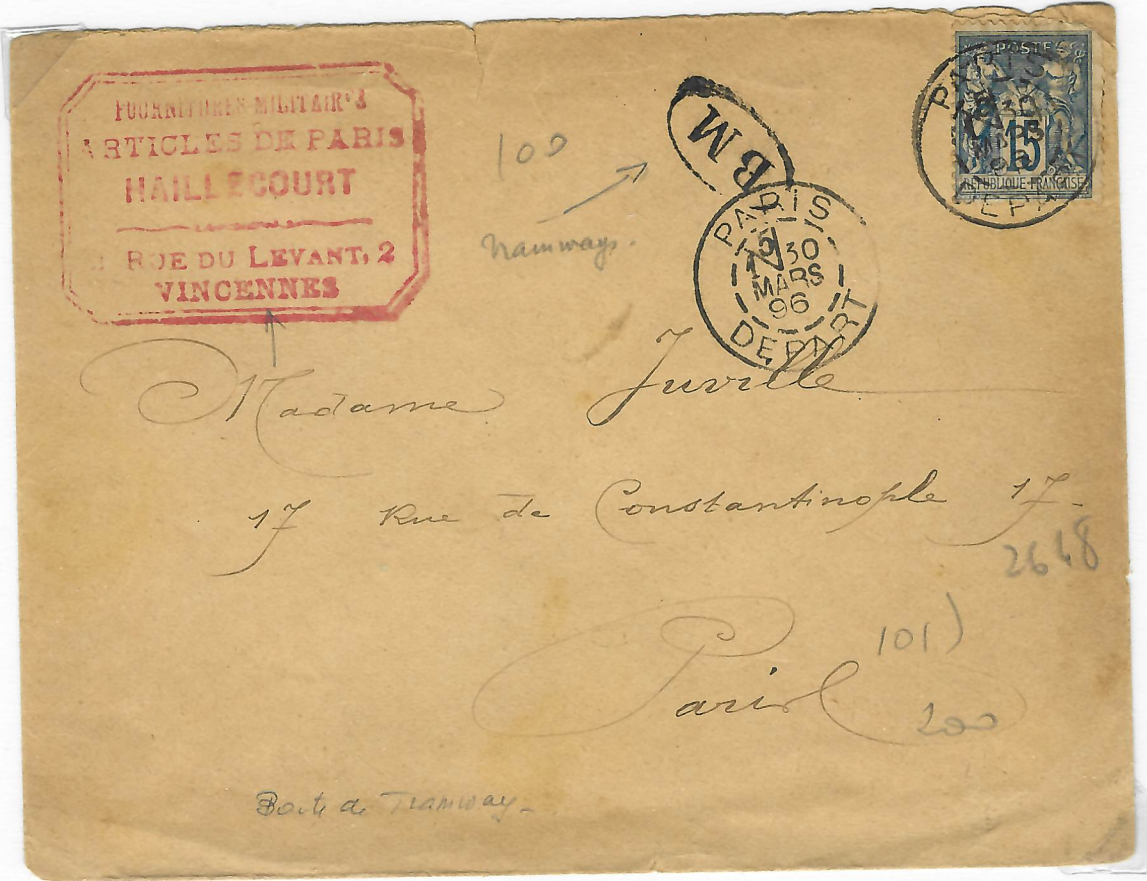 FOURNITURES MILITAIRES
ARTICLES DE PARIS
HAILLECOURT
RUE DU LEVANT, 2
VINCENNES
100
Tramways.
BM
PARIS
5
30
MARS
96
DEPART
POSTE
15
REPUBLIQUE FRANÇAISE
PARIS
30
MARS
96
DEPART
Madame Juville
17 Rue de Constantinople 17
2648
Paris
101)
200
Boite de Tramway